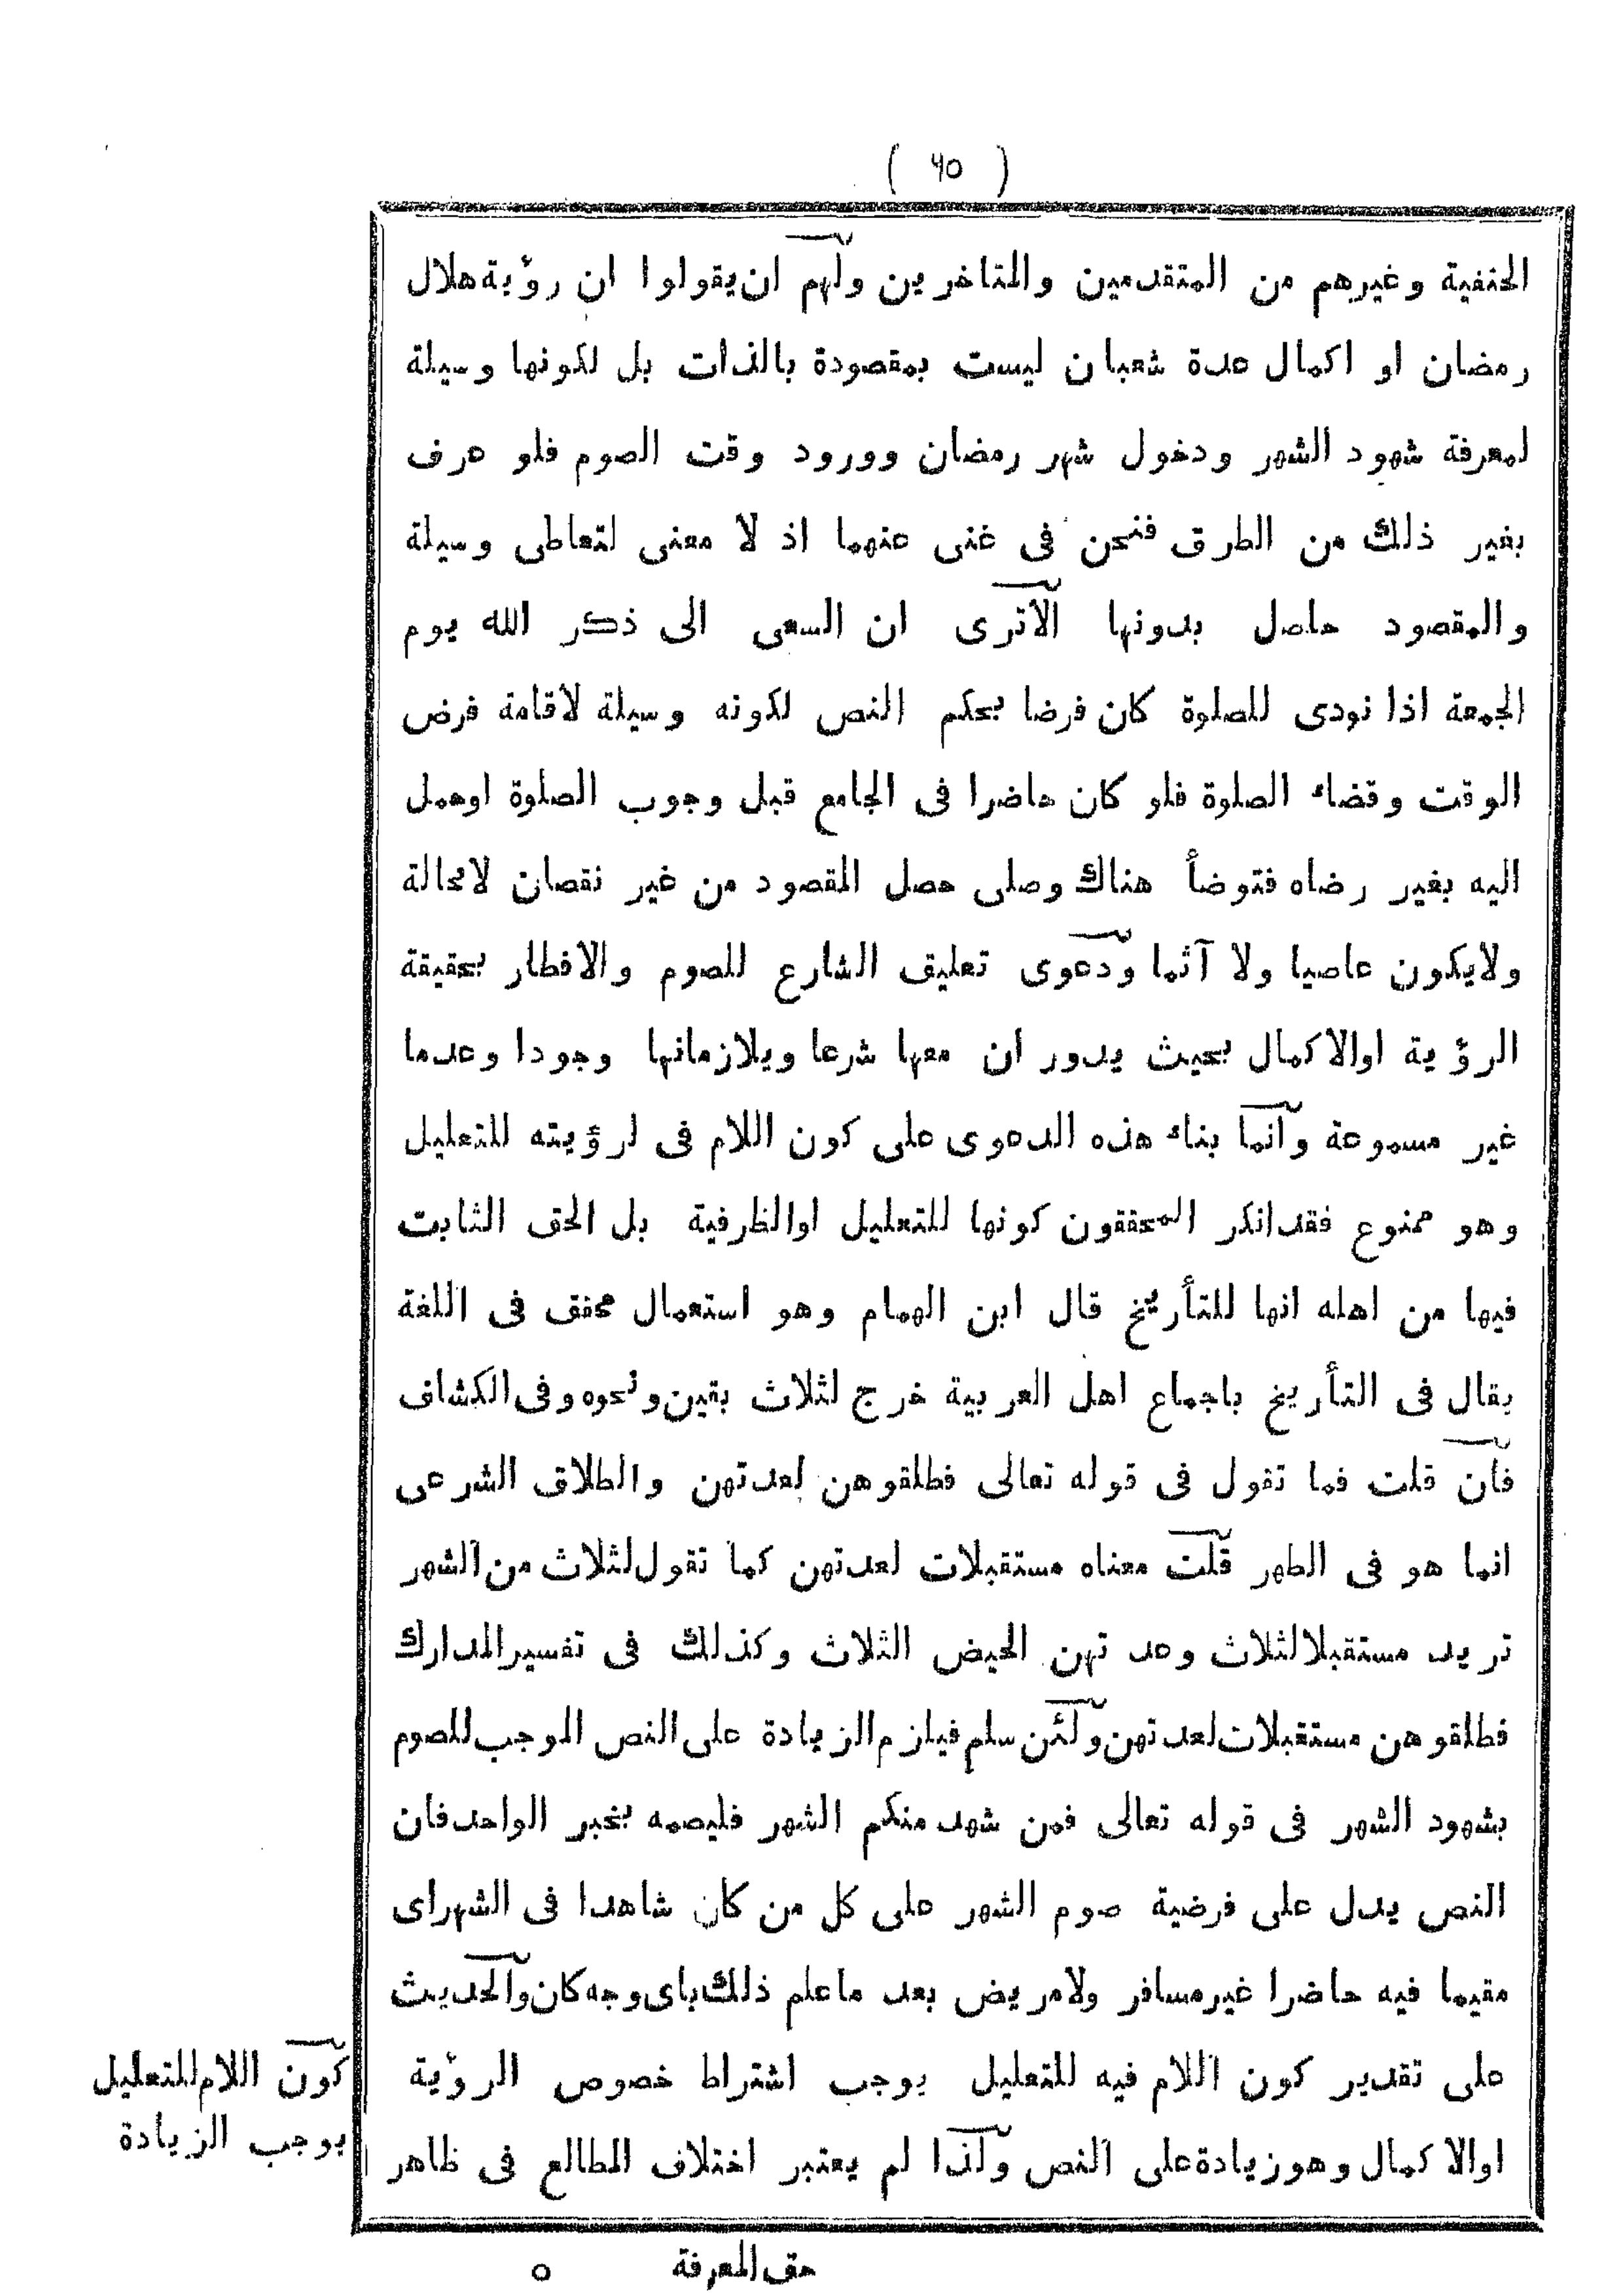 ( ٦٥ )
الحنفية وغيرهم من المتقدمين والمتاخرين ولهم ان يقولوا ان رؤية هلال
رمضان او اكمال عدة شعبان ليست بمقصودة بالذات بل لكونها وسيلة
لمعرفة شهود الشهر ودخول شهر رمضان وورود وقت الصوم فلو عرف
بغير ذلك من الطرق فنحن فى غنى عنهما اذ لا معنى لتعاطى وسيلة
والمقصود حاصل بدونها الآترى ان السعى الى ذكر الله يوم
الجمعة اذا نودى للصلوة كان فرضا بحكم النص لكونه وسيلة لاقامة فرض
الوقت وقضاء الصلوة فلو كان حاضرا فى الجامع قبل وجوب الصلوة اوحمل
اليه بغير رضاه فتوضأ هناك وصلى حصل المقصود من غير نقصان لامحالة
ولايكون عاصيا ولا آثما ودعوى تعليق الشارع للصوم والافطار بحقيقة
الرؤية اوالاكمال بحيث يدور ان معها شرعا ويلازمانها وجودا وعدما
غير مسموعة وآنما بناء هذه الدعوى على كون اللام فى لرؤيته للتعليل
وهو ممنوع فقد انكر المحققون كونها للتعليل اوالظرفية بل الحق الثابت
فيها من اهله انها للتأريخ قال ابن الهمام وهو استعمال محقق فى اللغة
يقال فى التأريخ باجماع اهل العربية خرج لثلاث بقين ونحوه وفى الكشاف
فآن قلت فما تقول فى قوله تعالى فطلقوهن لعدتهن والطلاق الشرعى
انما هو فى الطهر قلت معناه مستقبلات لعدتهن كما تقول لثلاث من الشهر
تريد مستقبلا لثلاث وعد تهن الحيض الثلاث وكذلك فى تفسير المدارك
فطلقوهن مستقبلات لعدتهن ولئن سلم فيلزم الزيادة على النص الموجب للصوم
بشهود الشهر فى قوله تعالى فمن شهد منكم الشهر فليصمه بخبر الواحد فان
النص يدل على فرضية صوم الشهر على كل من كان شاهدا فى الشهر اى
مقيما فيه حاضرا غير مسافر ولامريض بعد ماعلم ذلك باى وجه كان والحديث
على تقدير كون اللام فيه للتعليل يوجب اشتراط خصوص الرؤية
اوالا كمال وهو زيادة على النص ولذا لم يعتبر اختلاف المطالع فى ظاهر
كون اللام للتعليل
يوجب الزيادة
حق المعرفة ٥